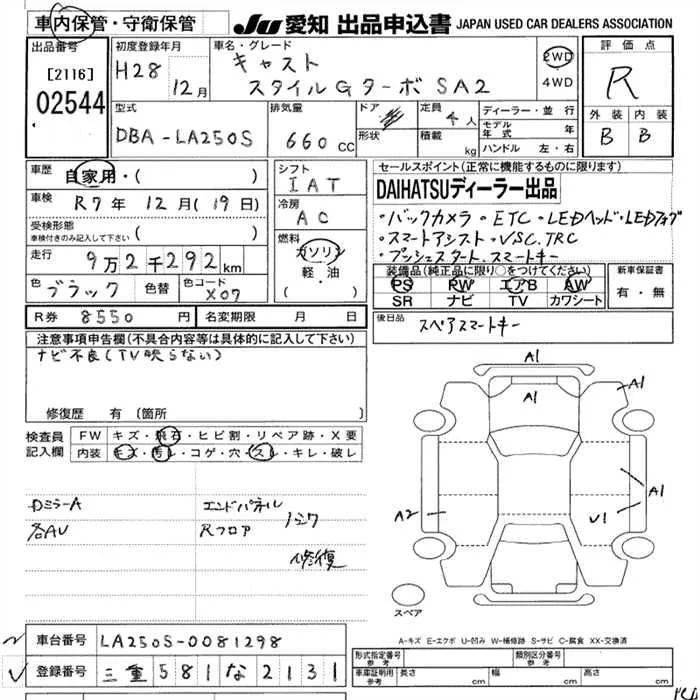 車内保管・守衛保管
JU 愛知 出品申込書 JAPAN USED CAR DEALERS ASSOCIATION
出品番号
[2116]
02544
初度登録年月
H28
12月
車名・グレード
キャスト
スタイルGターボSA2
2WD
4WD
評価点
R
外装 内装
B B
型式
DBA-LA250S
排気量
660cc
ドア
形状
定員
4人
積載
kg
ディーラー・並行
モデル年式 年
ハンドル 左・右
車歴
自家用・( )
車検
R7年12月(19日)
受検形態
車検付きのみ記入して下さい ( )
走行
9万2千292km
色
ブラック
色替
色コード
X07
シフト
IAT
冷房
AC
燃料
ガソリン
軽・油
セールスポイント(正常に機能するものに限ります)
DAIHATSUディーラー出品
・バックカメラ・ETC・LEDヘッド・LEDフォグ
・スマートアシスト・VSC.TRC
・プッシュスタート.スマートキー
装備品(純正品に限り○をつけてください)
PS PW エアB AW
SR ナビ TV カワシート
新車保証書
有・無
R券 8550円
名変期限 月 日
後日品
スペアスマートキー
注意事項申告欄(不具合内容等は具体的に記入して下さい)
ナビ不良(TV映らない)
修復歴 有 (箇所 )
検査員
記入欄
FW キズ・飛石・ヒビ割・リペア跡・X要
内装 キズ・汚レ・コゲ・穴・スレ・キレ・破レ
DミラーA
各AU
エンドパネル
Rフロア
修復
A1
A1
A1
A1
A2
U1
スペア
A-キズ E-エクボ U-凹み W-補修跡 S-サビ C-腐食 XX-交換済
車台番号 LA250S-0081298
登録番号 三重581な2131
形式指定番号
参考
類別区分番号
参考
車庫証明用
参考
長さ cm
幅 cm
高さ cm